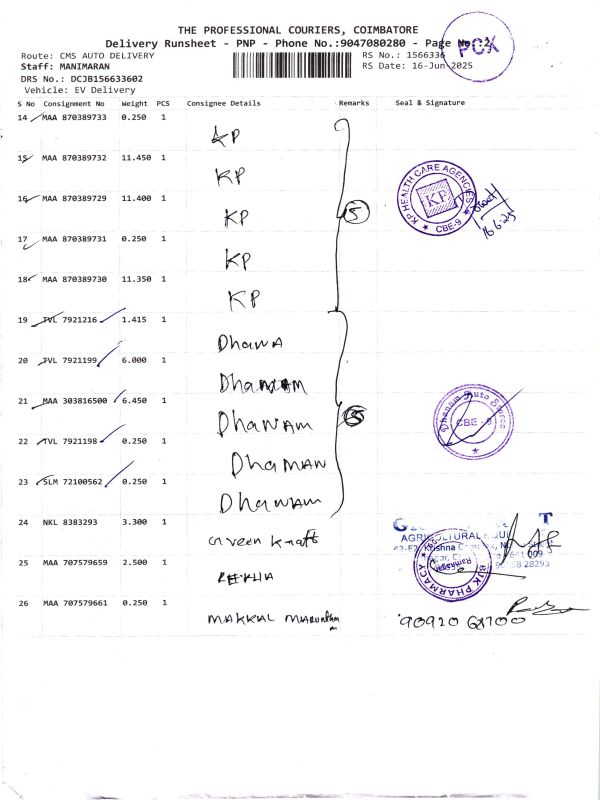 THE PROFESSIONAL COURIERS, COIMBATORE
Delivery Runsheet - PNP - Phone No.:9047080280 - Page No.:2
PCX
Route: CMS AUTO DELIVERY
RS No.: 1566336
Staff: MANIMARAN
RS Date: 16-Jun-2025
DRS No.: DCJB156633602
Vehicle: EV Delivery
S No Consignment No Weight PCS Consignee Details Remarks Seal & Signature
14 MAA 870389733 0.250 1
KP
15 MAA 870389732 11.450 1
KP
KP HEALTH CARE AGENCIES
KP
CBE-9
16 MAA 870389729 11.400 1
KP
5
16.6.25
17 MAA 870389731 0.250 1
KP
18 MAA 870389730 11.350 1
KP
19 TVL 7921216 1.415 1
DhanA
20 TVL 7921199 6.000 1
Dhanam
21 MAA 303816500 6.450 1
Dhanam
5
Dhanam Auto Stores
CBE - 9
22 TVL 7921198 0.250 1
DhaMAN
23 SLM 72100562 0.250 1
Dhanam
24 NKL 8383293 3.300 1
Green Kraft
G T
AGRICULTURAL EQUI
Krishna
641 009
28293
25 MAA 707579659 2.500 1
REKHA
PHARMACY
Ramnagar
26 MAA 707579661 0.250 1
MAKKAL Maruntham
90920